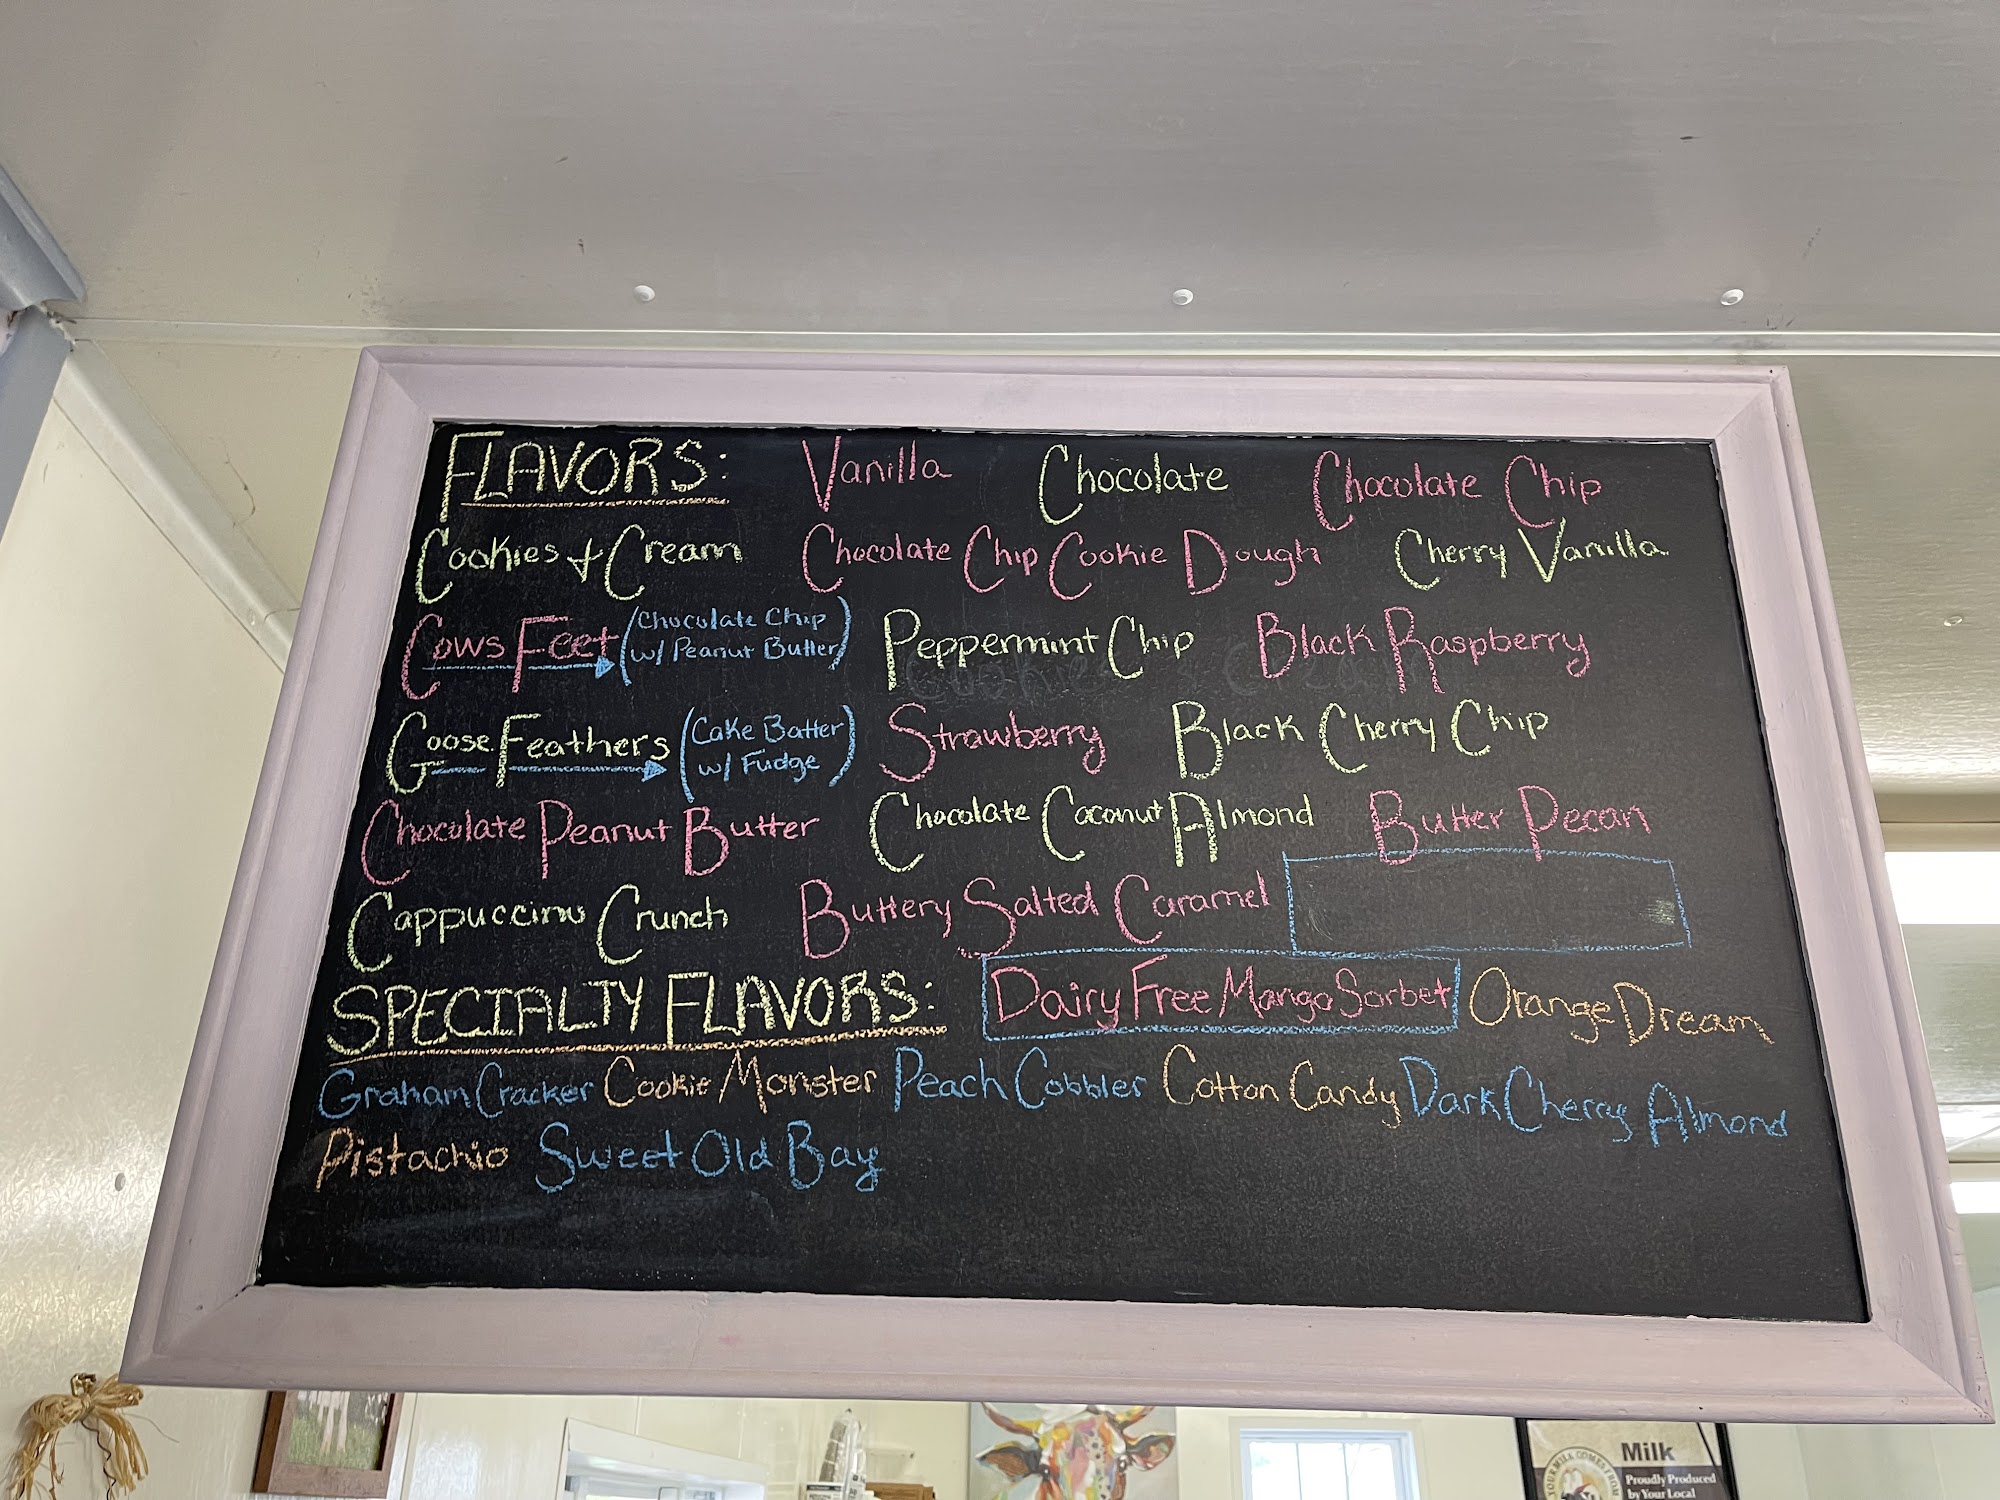 FLAVORS: Vanilla Chocolate Chocolate Chip
Cookies + Cream Chocolate Chip Cookie Dough Cherry Vanilla
Cows Feet (Chocolate Chip w/ Peanut Butter) Peppermint Chip Black Raspberry
Goose Feathers (Cake Batter w/ Fudge) Strawberry Black Cherry Chip
Chocolate Peanut Butter Chocolate Coconut Almond Butter Pecan
Cappuccino Crunch Buttery Salted Caramel
SPECIALTY FLAVORS: Dairy Free Mango Sorbet Orange Dream
Graham Cracker Cookie Monster Peach Cobbler Cotton Candy Dark Cherry Almond
Pistachio Sweet Old Bay
Milk
Proudly Produced
by Your Local